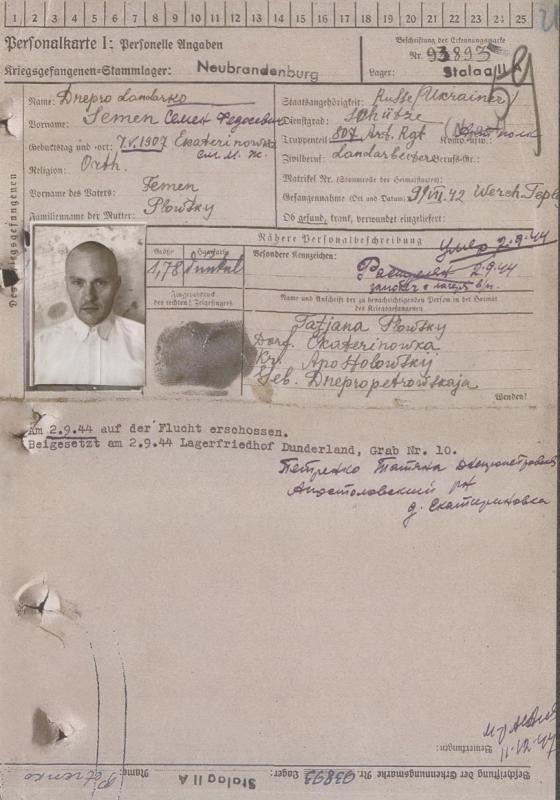 1 2 3 4 5 6 7 8 9 10 11 12 13 14 15 16 17 18 19 20 21 22 23 24 25
Personalkarte I: Personelle Angaben
Beschriftung der Erkennungsmarke
Nr. 93893
Kriegsgefangenen-Stammlager: Neubrandenburg
Lager: Stalag II A
Des Kriegsgefangenen
Name: Dnepro Landarko
Vorname: Semen Семен Федосеевич
Geburtstag und -ort: 7.V.1907 Ekaterinowka
Religion: Orth.
Vorname des Vaters: Femen
Familienname der Mutter: Plowsky
Staatsangehörigkeit: Russe (Ukrainer)
Dienstgrad: Schütze
Truppenteil: 807 Art. Rgt Komp. usw.:
Zivilberuf: Landarbeiter Berufs-Gr.:
Matrikel Nr. (Stammrolle des Heimatstaates):
Gefangennahme (Ort und Datum): 9/VII.42 Werch. Tepl
Ob gesund, krank, verwundet eingeliefert:
Nähere Personalbeschreibung
умер 2.9.44
Größe
Haarfarbe
1,78 dunkel
Besondere Kennzeichen:
Расстрелян 2.9.44
Fingerabdruck
des rechten! Zeigefingers
Name und Anschrift der zu benachrichtigenden Person in der Heimat
des Kriegsgefangenen
Tatjana Plowsky
Dorf. Ekaterinowka
Kr. Apo Holowskij
Geb. Dnepropetrowskaja
Wenden!
Am 2.9.44 auf der Flucht erschossen.
Beigesetzt am 2.9.44 Lagerfriedhof Dunderland, Grab Nr. 10.
Петренко Татяна Днепропетровск
Апостоловский рн
д. Екатириновка
11.12.47
Bemerkungen:
Beschriftung der Erkennungsmarke Nr. 93893 Lager: Stalag II A
Name: Petrenko